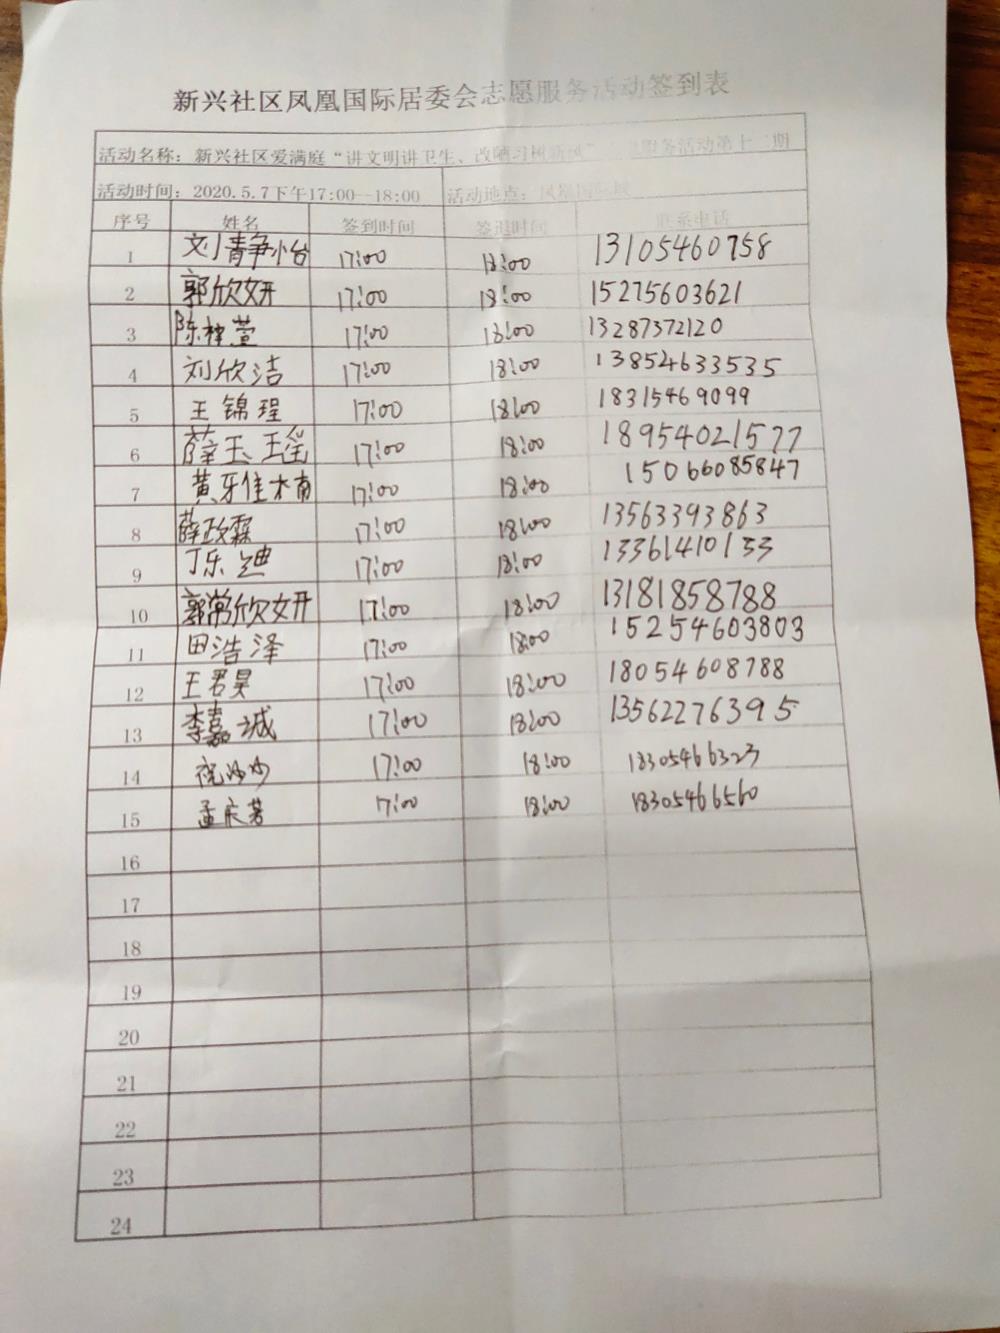 新兴社区凤凰国际居委会志愿服务活动签到表
活动名称：新兴社区爱满庭“讲文明讲卫生、改陋习树新风”志愿服务活动第十二期
活动时间：2020.5.7下午17:00--18:00 活动地点：凤凰国际
序号 姓名 签到时间 签退时间 联系电话
1 刘静怡 17:00 18:00 13105460758
2 郭欣妍 17:00 18:00 15275603621
3 陈梓萱 17:00 18:00 13287372120
4 刘欣洁 17:00 18:00 13854633535
5 王锦程 17:00 18:00 18315469099
6 薛玉瑶 17:00 18:00 18954021577
7 黄雅楠 17:00 18:00 15066085847
8 薛政霖 17:00 18:00 13563393863
9 丁乐迪 17:00 18:00 13361410153
10 郭常欣妍 17:00 18:00 13181858788
11 田浩泽 17:00 18:00 15254603803
12 王君昊 17:00 18:00 18054608788
13 李嘉城 17:00 18:00 13562276395
14 祝 17:00 18:00 18305466323
15 孟 17:00 18:00 18305466560
16
17
18
19
20
21
22
23
24